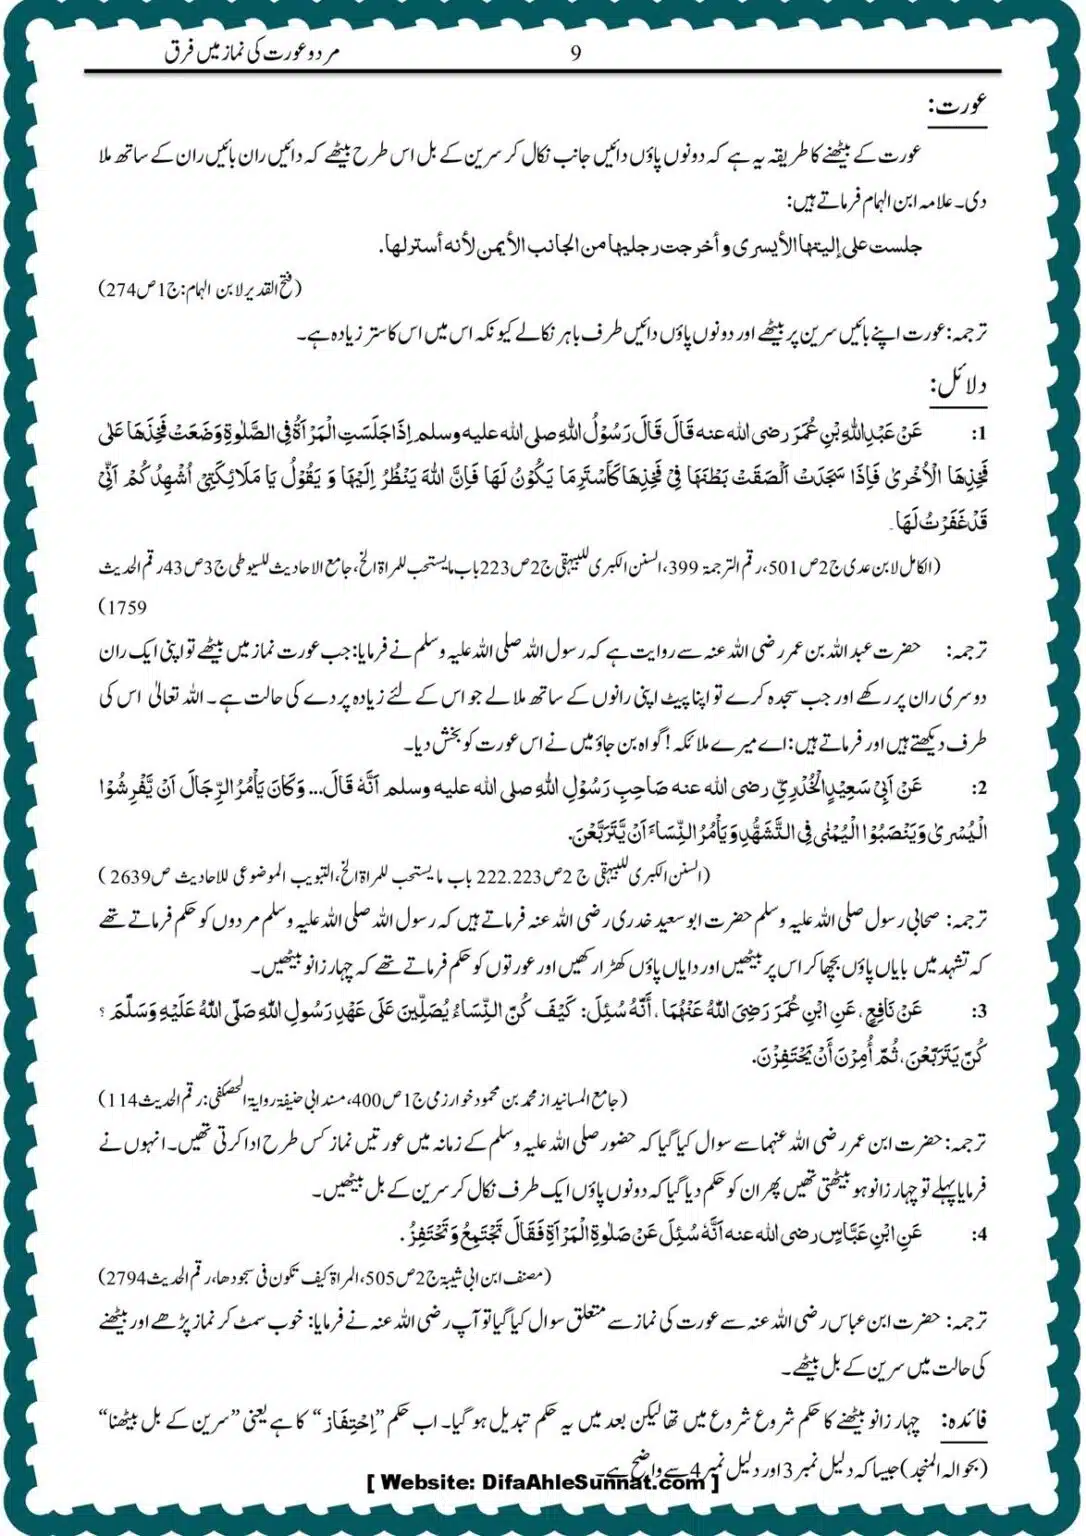 مرد و عورت کی نماز میں فرق
9
عورت:
عورت کے بیٹھنے کا طریقہ یہ ہے کہ دونوں پاؤں دائیں جانب نکال کر سرین کے بل اس طرح بیٹھے کہ دائیں ران بائیں ران کے ساتھ ملا
دی۔ علامہ ابن الہمام فرماتے ہیں:
جلست على إليتها الأيسرى و أخرجت رجليها من الجانب الأيمن لأنه أستر لها.
(فتح القدیر لابن الہمام: ج1 ص274)
ترجمہ: عورت اپنے بائیں سرین پر بیٹھے اور دونوں پاؤں دائیں طرف باہر نکالے کیونکہ اس میں اس کا ستر زیادہ ہے۔
دلائل:
1: عَنْ عَبْدِاللّٰهِ بْنِ عُمَرَ رضی الله عنه قَالَ قَالَ رَسُوْلُ اللّٰهِ صلی الله علیه وسلم اِذَا جَلَسَتِ الْمَرْاَةُ فِی الصَّلٰوةِ وَضَعَتْ فَخِذَهَا عَلٰی
فَخِذِهَا الْاُخْرىٰ فَاِذَا سَجَدَتْ اَلْصَقَتْ بَطْنَهَا فِیْ فَخِذِهَا کَاَسْتَرِ مَا یَکُوْنُ لَهَا فَاِنَّ اللّٰهَ یَنْظُرُ اِلَیْهَا وَ یَقُوْلُ یَا مَلَائِکَتِیْ اُشْهِدُکُمْ اَنِّیْ
قَدْ غَفَرْتُ لَهَا۔
(الکامل لابن عدی ج2 ص501، رقم الترجمۃ 399، السنن الکبری للبیہقی ج2 ص223 باب ما یستحب للمراۃ الخ، جامع الاحادیث للسیوطی ج3 ص43 رقم الحدیث
1759)
ترجمہ: حضرت عبد اللہ بن عمر رضی اللہ عنہ سے روایت ہے کہ رسول اللہ صلی اللہ علیہ وسلم نے فرمایا: جب عورت نماز میں بیٹھے تو اپنی ایک ران
دوسری ران پر رکھے اور جب سجدہ کرے تو اپنا پیٹ اپنی رانوں کے ساتھ ملا لے جو اس کے لئے زیادہ پردے کی حالت ہے۔ اللہ تعالیٰ اس کی
طرف دیکھتے ہیں اور فرماتے ہیں: اے میرے ملائکہ! گواہ بن جاؤ میں نے اس عورت کو بخش دیا۔
2: عَنْ اَبِیْ سَعِیْدِ الْخُدْرِیِّ رضی الله عنه صَاحِبِ رَسُوْلِ اللّٰهِ صلی الله علیه وسلم اَنَّهٗ قَالَ... وَکَانَ یَأْمُرُ الرِّجَالَ اَنْ یَّفْرِشُوْا
الْیُسْریٰ وَیَنْصَبُوْا الْیُمْنٰی فِی التَّشَهُّدِ وَ یَأْمُرُ النِّسَاءَ اَنْ یَّتَرَبَّعْنَ.
(السنن الکبری للبیہقی ج 2 ص222.223 باب ما یستحب للمراۃ الخ، التبویب الموضوعی للاحادیث ص2639 )
ترجمہ: صحابی رسول صلی اللہ علیہ وسلم حضرت ابو سعید خدری رضی اللہ عنہ فرماتے ہیں کہ رسول اللہ صلی اللہ علیہ وسلم مردوں کو حکم فرماتے تھے
کہ تشہد میں بایاں پاؤں بچھا کر اس پر بیٹھیں اور دایاں پاؤں کھڑا رکھیں اور عورتوں کو حکم فرماتے تھے کہ چہار زانو بیٹھیں۔
3: عَنْ نَافِعٍ، عَنِ ابْنِ عُمَرَ رَضِیَ اللّٰهُ عَنْهُمَا، أَنَّهُ سُئِلَ: كَيْفَ كُنَّ النِّسَاءُ يُصَلِّينَ عَلَى عَهْدِ رَسُولِ اللّٰهِ صَلَّى اللّٰهُ عَلَيْهِ وَسَلَّمَ ؟
كُنَّ يَتَرَبَّعْنَ، ثُمَّ أُمِرْنَ أَنْ يَحْتَفِزْنَ.
(جامع المسانید از محمد بن محمود خوارزمی ج1 ص400، مسند ابی حنیفۃ روایۃ الحصکفی: رقم الحدیث 114)
ترجمہ: حضرت ابن عمر رضی اللہ عنہما سے سوال کیا گیا کہ حضور صلی اللہ علیہ وسلم کے زمانہ میں عورتیں نماز کس طرح ادا کرتی تھیں۔ انہوں نے
فرمایا پہلے تو چہار زانو ہو بیٹھتی تھیں پھر ان کو حکم دیا گیا کہ دونوں پاؤں ایک طرف نکال کر سرین کے بل بیٹھیں۔
4: عَنِ ابْنِ عَبَّاسٍ رضی الله عنه اَنَّهٗ سُئِلَ عَنْ صَلٰوةِ الْمَرْاَةِ فَقَالَ تَجْتَمِعُ وَتَحْتَفِزُ.
(مصنف ابن ابی شیبۃ ج2 ص505، المراۃ کیف تکون فی سجودھا، رقم الحدیث 2794)
ترجمہ: حضرت ابن عباس رضی اللہ عنہ سے عورت کی نماز سے متعلق سوال کیا گیا تو آپ رضی اللہ عنہ نے فرمایا: خوب سمٹ کر نماز پڑھے اور بیٹھنے
کی حالت میں سرین کے بل بیٹھے۔
فائدہ: چہار زانو بیٹھنے کا حکم شروع شروع میں تھا لیکن بعد میں یہ حکم تبدیل ہو گیا۔ اب حکم ”اِحْتِفَاز“ کا ہے یعنی ”سرین کے بل بیٹھنا“
(بحوالہ المنجد) جیسا کہ دلیل نمبر 3 اور دلیل نمبر 4 سے واضح ہے۔
[ Website: DifaAhleSunnat.com ]